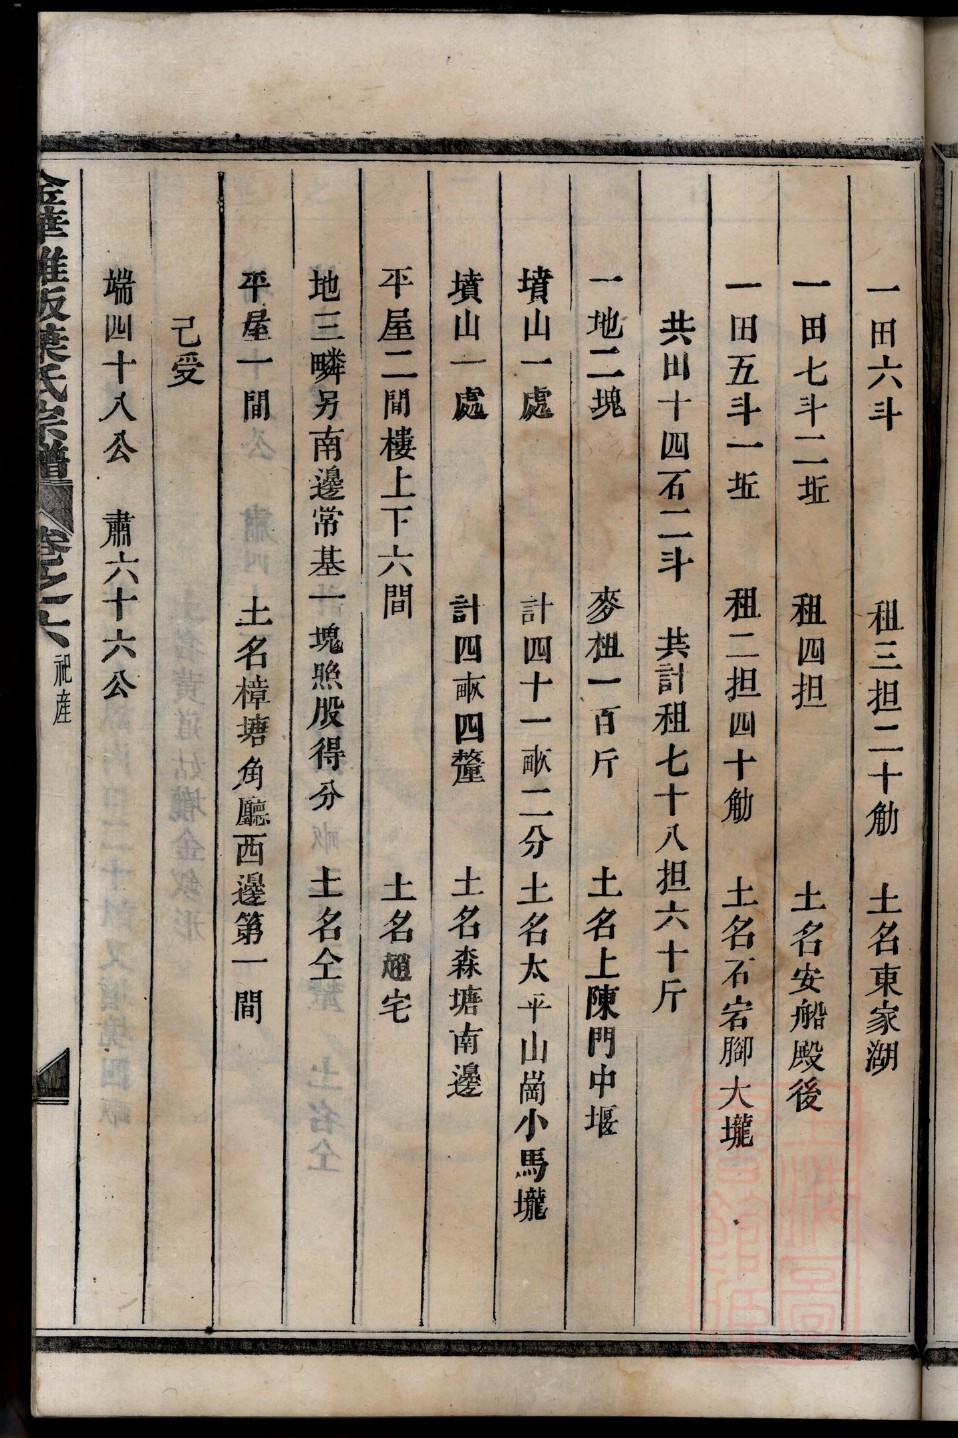 一田六斗 租三担二十觔 土名東家湖
一田七斗二坵 租四担 土名安船殿後
一田五斗一坵 租二担四十觔 土名石宕腳大壠
共田十四石二斗 共計租七十八担六十斤
一地二塊 麥租一百斤 土名上陳門中堰
墳山一處 計四十一畝二分 土名太平山崗小馬壠
墳山一處 計四畝四釐 土名森塘南邊
平屋二間樓上下六間 土名趙宅
地三疄另南邊常基一塊照股得分 土名仝
平屋一間 土名樟塘角廳西邊第一間
己受
端四十八公 肅六十六公
金華雅畈葉氏宗譜 卷之六 祀產